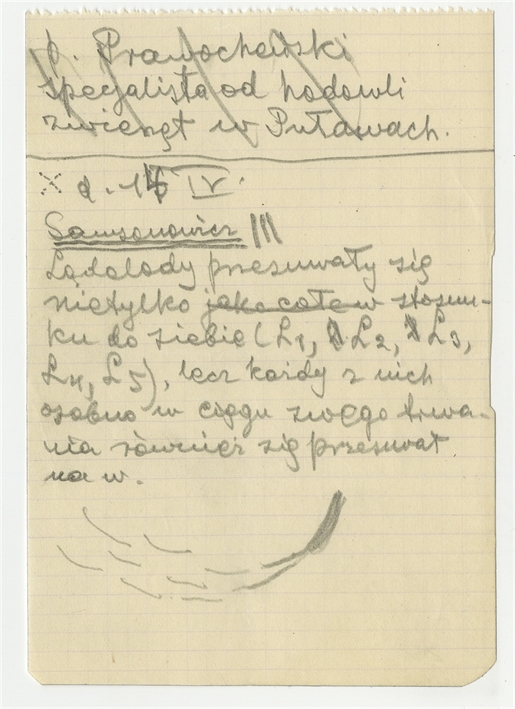 p. Prawocheński
specjalista od hodowli
zwierząt w Puławach.
× d. 15 IV.
Samsonowicz III
Lądolody przesuwały się
nietylko jako całe w stosun-
ku do siebie (L1, L2, L3,
L4, L5), lecz każdy z nich
osobno w ciągu swego trwa-
nia również się przesuwał
na w.